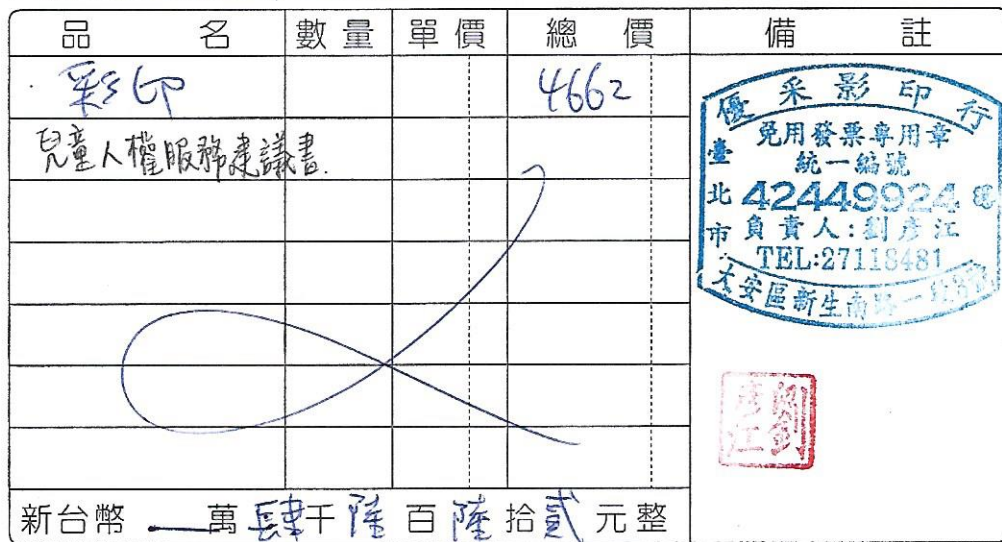 品名 數量 單價 總價 備註
彩印 4662
兒童人權服務建議書.
新台幣 一萬肆千陸百陸拾貳元整
優采影印行
免用發票專用章
統一編號
臺北市
42449924
負責人:劉彥江
TEL:27118481
大安區新生南路一段
劉彥江